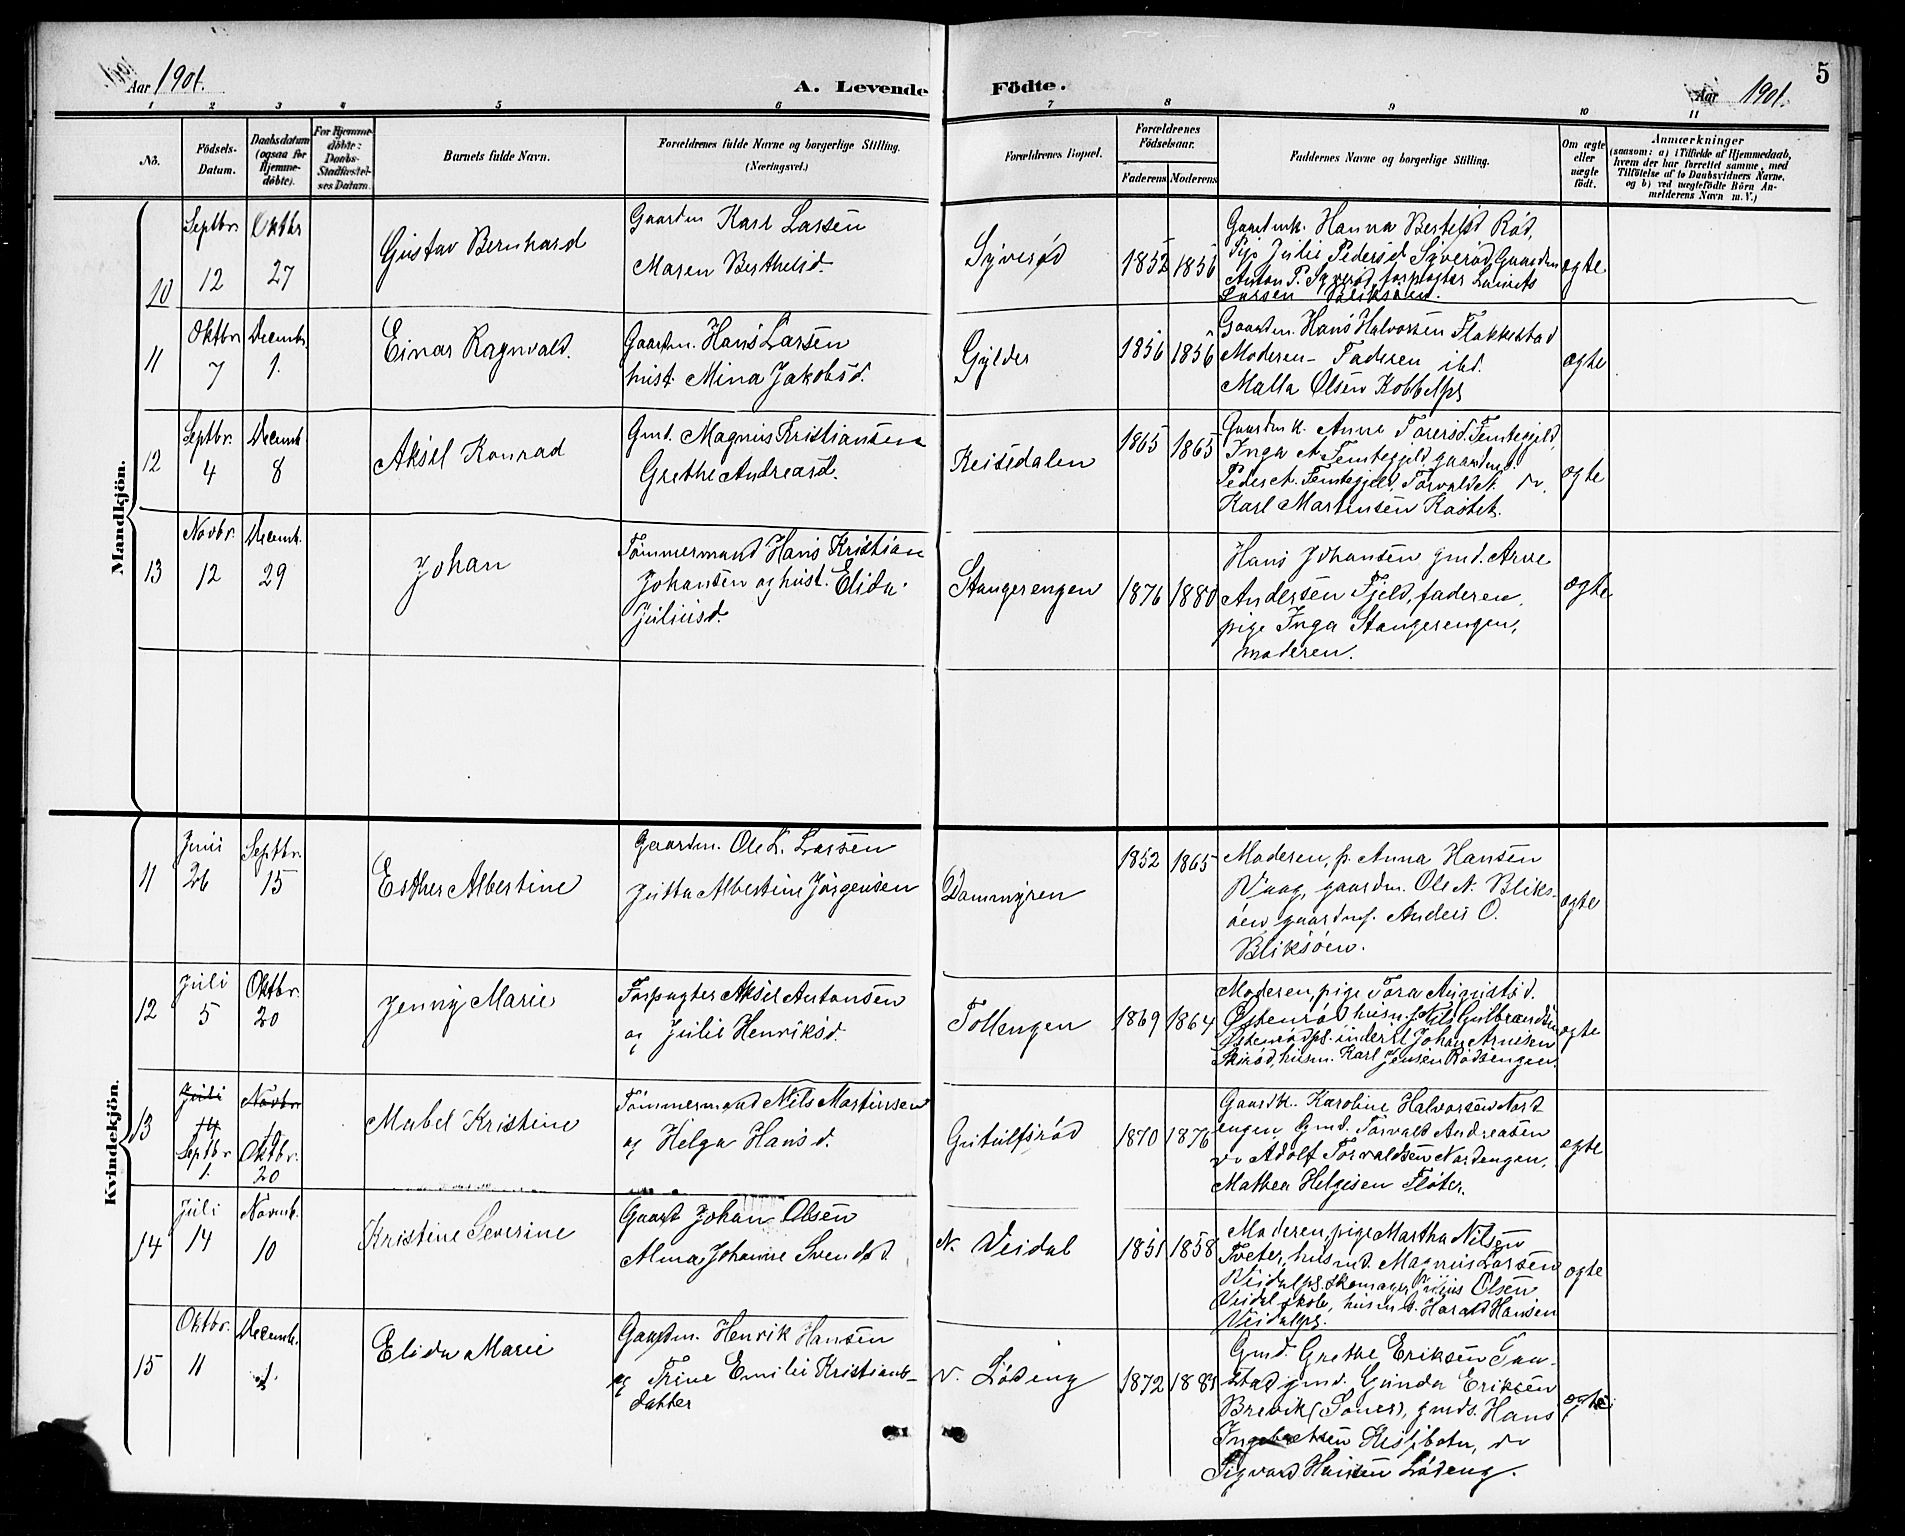 Aar 1901.
A. Levende Födte.
Aar 1901.
5
1 2 3 4 5 6 7 8 9 10 11
No.
Födsels-Datum.
Daabsdatum (ogsaa for Hjemme-døbte).
For Hjemme-døbte: Daabs-Stadfæstel-ses Datum.
Barnets fulde Navn.
Forældrenes fulde Navne og borgerlige Stilling. (Næringsvei.)
Forældrenes Bopæl.
Forældrenes Födselsaar.
Faderens Moderens
Faddernes Navne og borgerlige Stilling.
Om ægte eller uægte født.
Anmærkninger
(saasom: a) i Tilfælde af Hjemmedaab,
hvem der har forrettet samme, med
Tilføielse af to Daabsvidners Navne,
og b) ved uægtefødte Börn An-
melderens Navn m. V.)
Mandkjön.
10
Septbr 12
Oktbr 27
Gustav Bernhard
Gaardm Karl Larsen
Maren Berthelsd.
Syverød
1852 1856
Gaardmk. Hanna Bertelsd Rød,
Pige Julie Pedersd Syverød, Gaardm
Anton P. Syverød, forpagter Laurits
Larsen Bliksøen.
ægte
11
Oktbr 7
Decembr 1.
Einar Ragnvald.
Gaardm. Hans Larsen
hust. Mina Jakobsd.
Gylder
1856 1856
Gaardm. Hans Halvorsen Flakkestad
Moderen - Faderen ibd.
Malla Olsen Kobbelps
ægte
12
Septbr. 4
Decemb. 8
Aksel Konrad
Gmd. Magnus Kristiansen
Grethe Andreasd.
Reisedalen
1865 1865
Gaardmk. Anne Torersd. Femtegjeld,
Inga A. Femtegjeld, gaardmd
Peder A. Femtegjeld, Torvald A. do,
Karl Martinsen Kastet.
ægte
13
Novbr. 12
Decemb. 29
Johan
Tømmermand Hans Kristian
Johansen og hust. Elida
Juliusd.
Stangerengen
1876 1880
Hans Johansen gmd. Arve
Andersen Fjeld, faderen,
pige Inga Stangerengen,
moderen.
ægte
Kvindekjön.
11
Juni 26
Septbr. 15
Esther Albertine
Gaardm. Ole L. Larsen
Jutta Albertine Jørgensen
Dammyren
1852 1865
Moderen, p. Anna Hansen
Vaag, gaardm. Ole A. Bliks-
øen gaardmf. Anders O.
Bliksøen.
ægte
12
Juli 5
Oktbr. 20
Jenny Marie
Forpagter Aksel Antonsen
og Julie Henriksd.
Tollengen
1869 1864
Moderen, pige Tora Augustsd.
Østenrød husm. Nils Gulbrandsen
Østenrødpl. inderst Johan Arnesen
Skirød, husm. Karl Jensen Rødsengen.
ægte
13
Juli 14
Septbr 1.
Novbr 10
Oktbr. 20
Mabel Kristine
Tømmermand Nils Martinsen
og Helga Hansd.
Gutulfsrød
1870 1876
Gaardk. Karoline Halvorsen Nord
engen, Gmd. Torvald Andreasen
do Adolf Torvaldsen Nordengen,
Mathea Helgesen Fløter.
ægte
14
Juli 14
Novemb. 10
Kristine Severine
Gaard Johan Olsen
Alma Johanne Svendsd
N. Veidal
1851 1858
Moderen, pige Martha Nilsen
Tveter, husmd. Magnus Larsen
Veidalps. skomager Julius Olsen
Veidal skole, husmd. Harald Hansen
Veidalps.
ægte
15
Oktbr. 11
Decemb. 1.
Elida Marie
Gaardm. Henrik Hansen
og Trine Emilie Kristians-
datter
v. Lødeng
1872 1881
Gmd. Grethe Eriksen Gun-
stad gmd. Gunda Eriksen
Brevik (Soner), gmds. Hans
Ingebretsen Huseboten, do
Sigvard Hansen Lødeng.
ægte